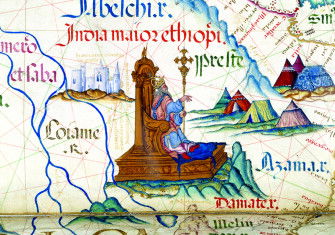 Abelchi.r.
India maioz ethiopi.
mero
et saba
preste
Lorame
.R.
Azama.r.
Damate.r.
Melin